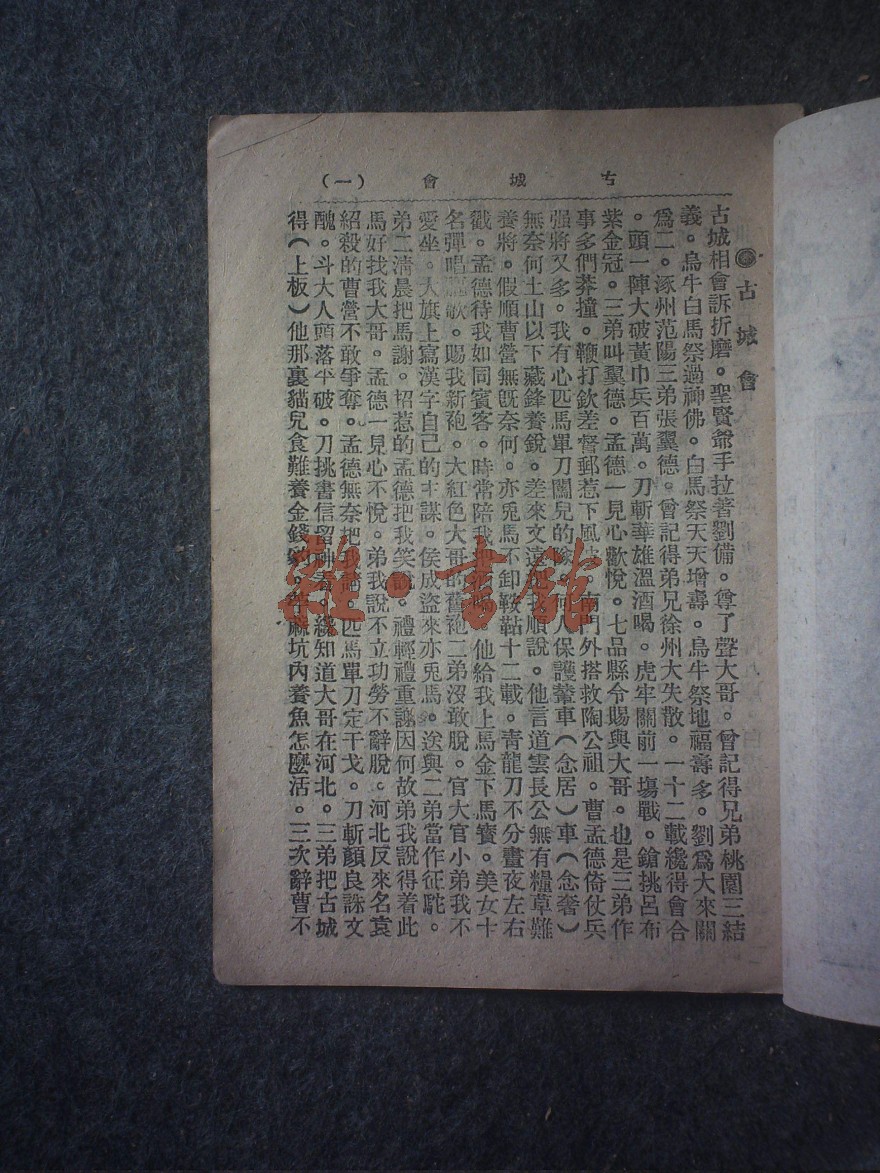 古城會(一)
古城會
古城相會訴折磨。聖賢爺手拉著劉備。尊了聲大哥。曾記得兄弟桃園三結
義。烏牛白馬祭過神佛。白馬祭天天增壽。烏牛祭地福壽多。劉爲大來關
爲二。涿州范陽三弟張翼德。曾記得弟兄徐州大失散。一十二載纔得會合
。頭一陣大破黃巾兵百萬。刀斬華雄溫酒喝。虎牢關前一塲戰。鎗挑呂布
紫金冠。三弟叫翼德。孟德一見心歡悅。七品縣令賜與大哥。也是三弟作
事多們莽撞。鞭打欽差督郵惹下風 南門外搭救陶公祖。曹孟德倚仗兵
强將又多。我有心匹馬單刀闖兒的 何人保護輦車(念居)車(念奢)
無奈何土山以下藏鋒養銳。差來文遠 我順說。他言道雲長公無有糧草難
養將。假順曹營無旣奈何。亦兎馬不卸鞍鞊十二載。青龍刀不分晝夜左右
戳。孟德待我如同賓客。時常陪我把 他給我上馬金下馬寶。美女十
名彈唱 歌。賜我新袍。大紅色大哥的舊袍二弟沒敢脫。官大官小弟我不
愛坐。大旗上寫漢字自己的主謀。侯成盜來亦兎馬。送與二弟當作征駝。
弟二清晨把馬謝。招惹的孟德把我笑說 禮輕禮重謝因何故弟我說得着此
馬好找我大哥。孟德一見心不悅。弟我說不立功勞不辭脫。河北反來名袁
紹殺的曹營不敢爭奪。孟德無奈把我 匹馬單刀定干戈。刀斬顏良誅文
醜。斗大人頭落平破。刀挑書信留神看。纔知道大哥在河北。三弟把古城
得(上板)他那裏貓兒食難養金錢 麻坑內養魚怎麼活。三次辭曹不
雜·書館